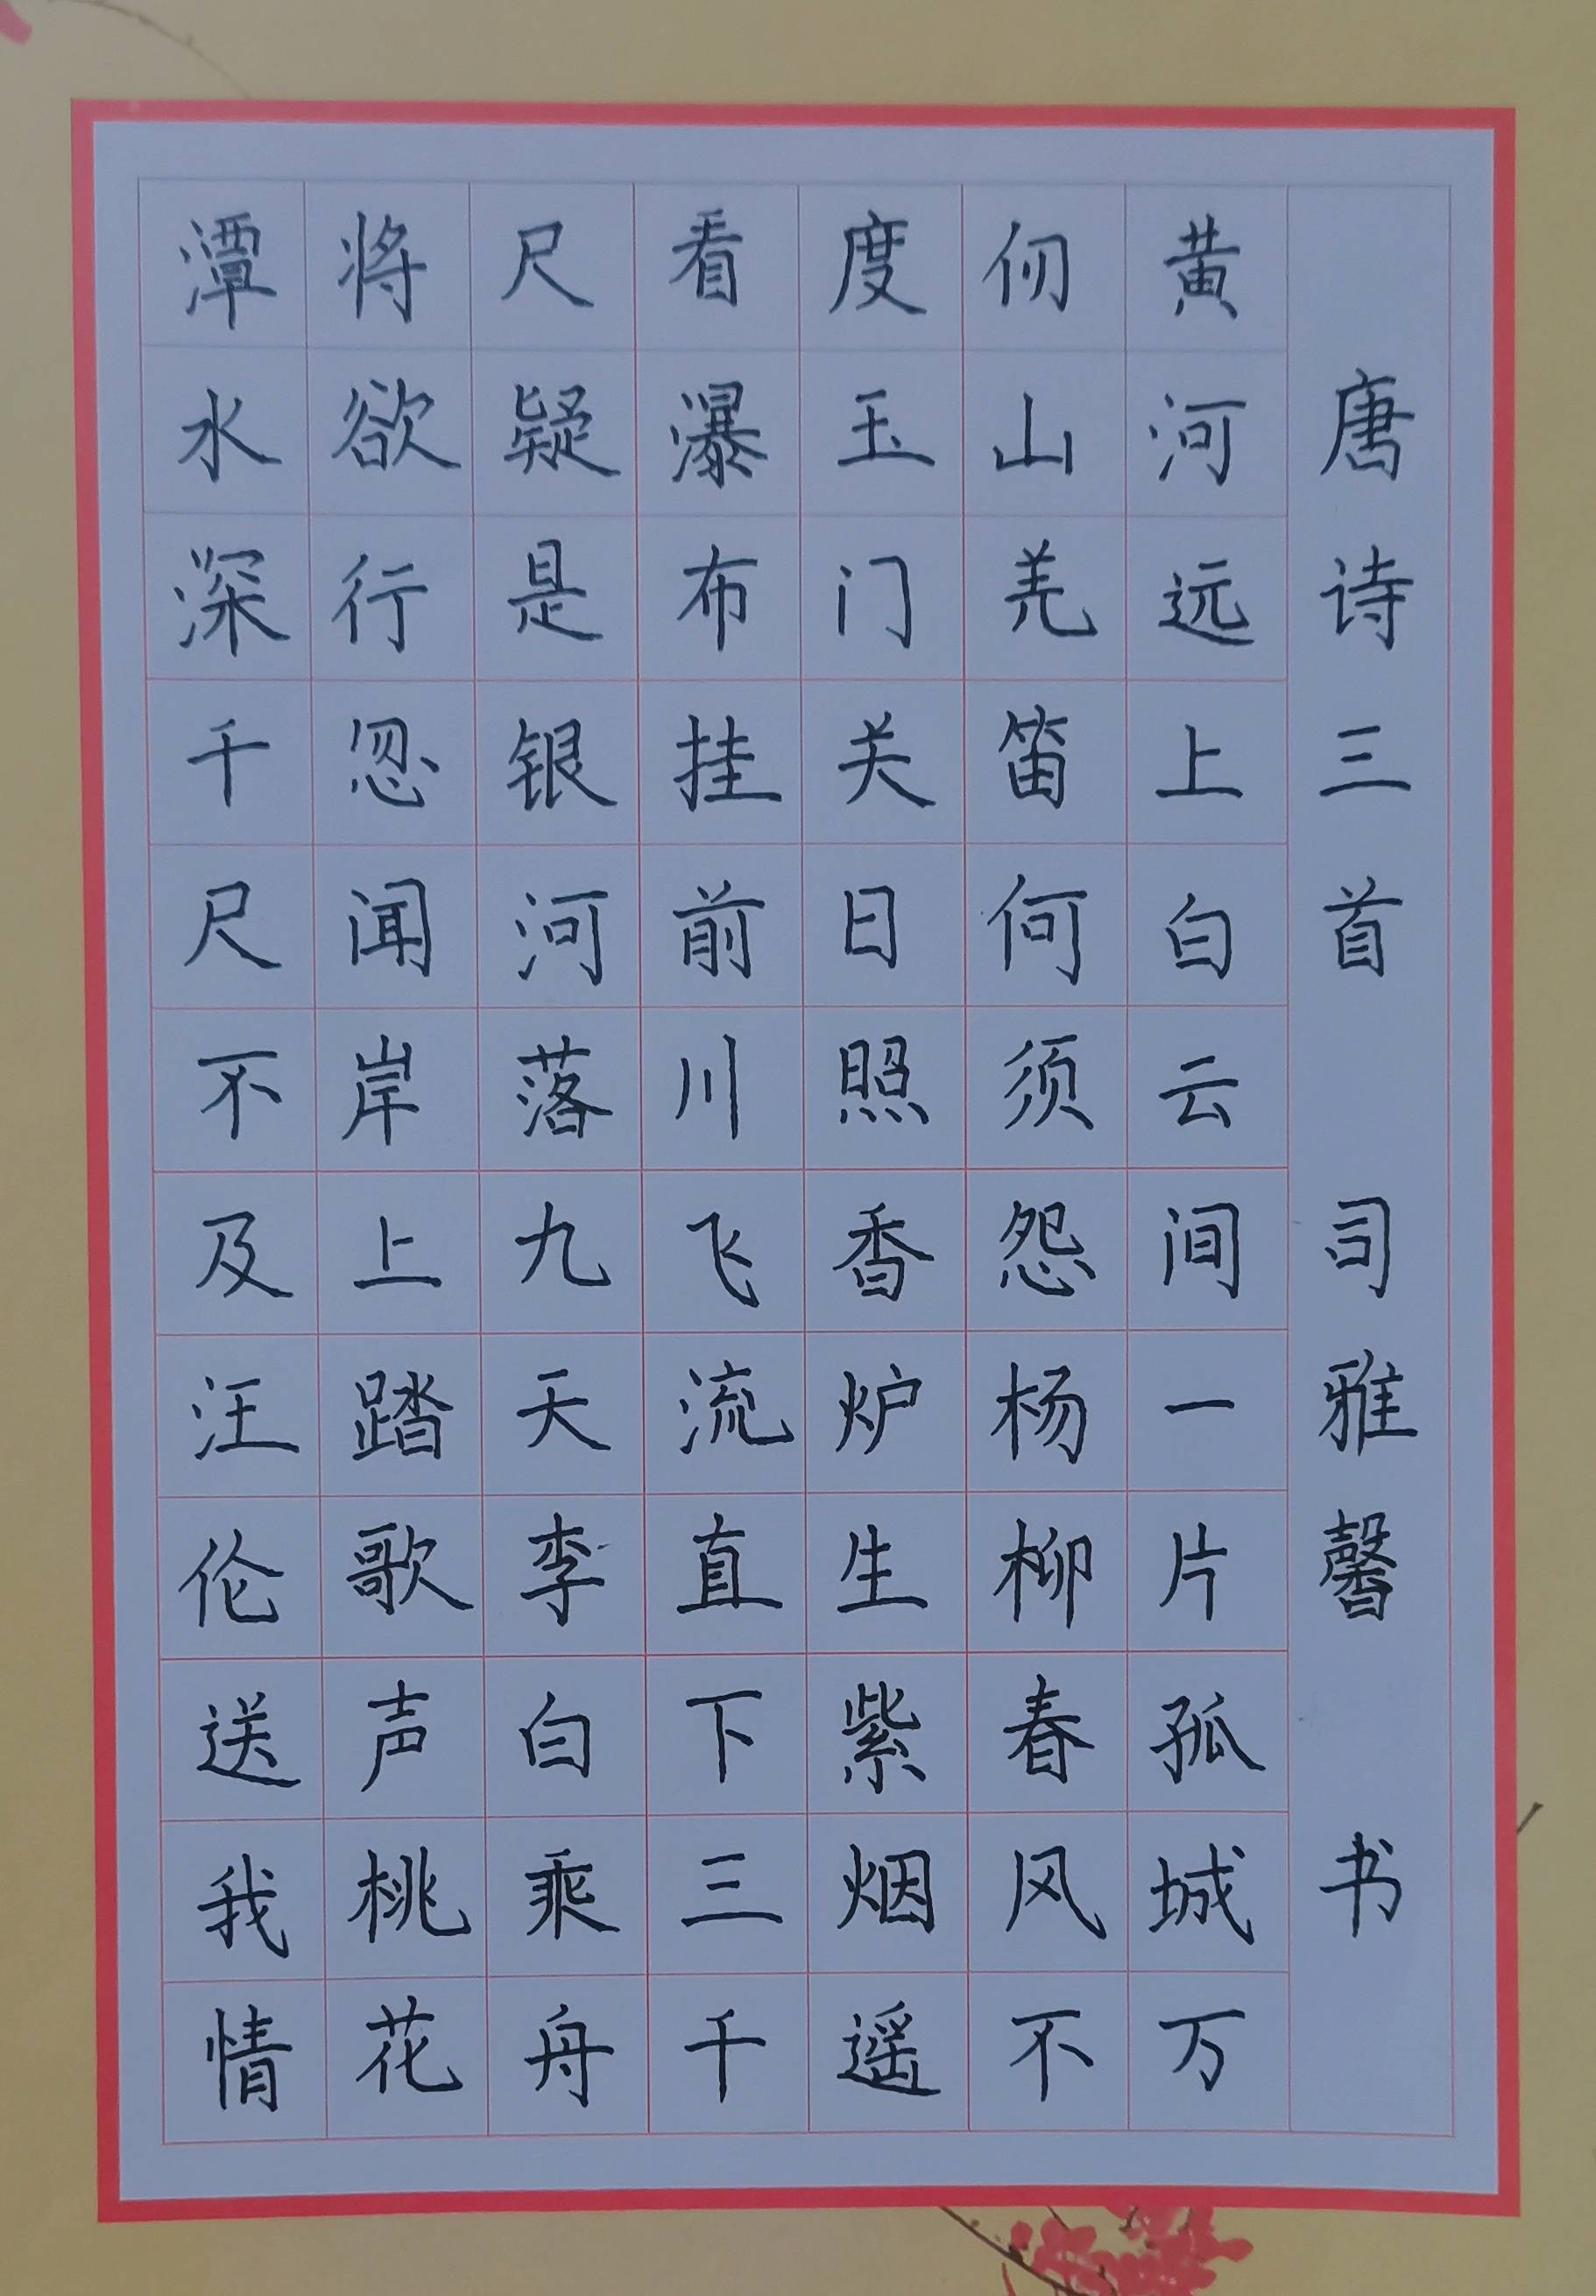 唐诗三首 司雅馨 书
黄河远上白云间一片孤城万
仞山羌笛何须怨杨柳春风不
度玉门关日照香炉生紫烟遥
看瀑布挂前川飞流直下三千
尺疑是银河落九天李白乘舟
将欲行忽闻岸上踏歌声桃花
潭水深千尺不及汪伦送我情